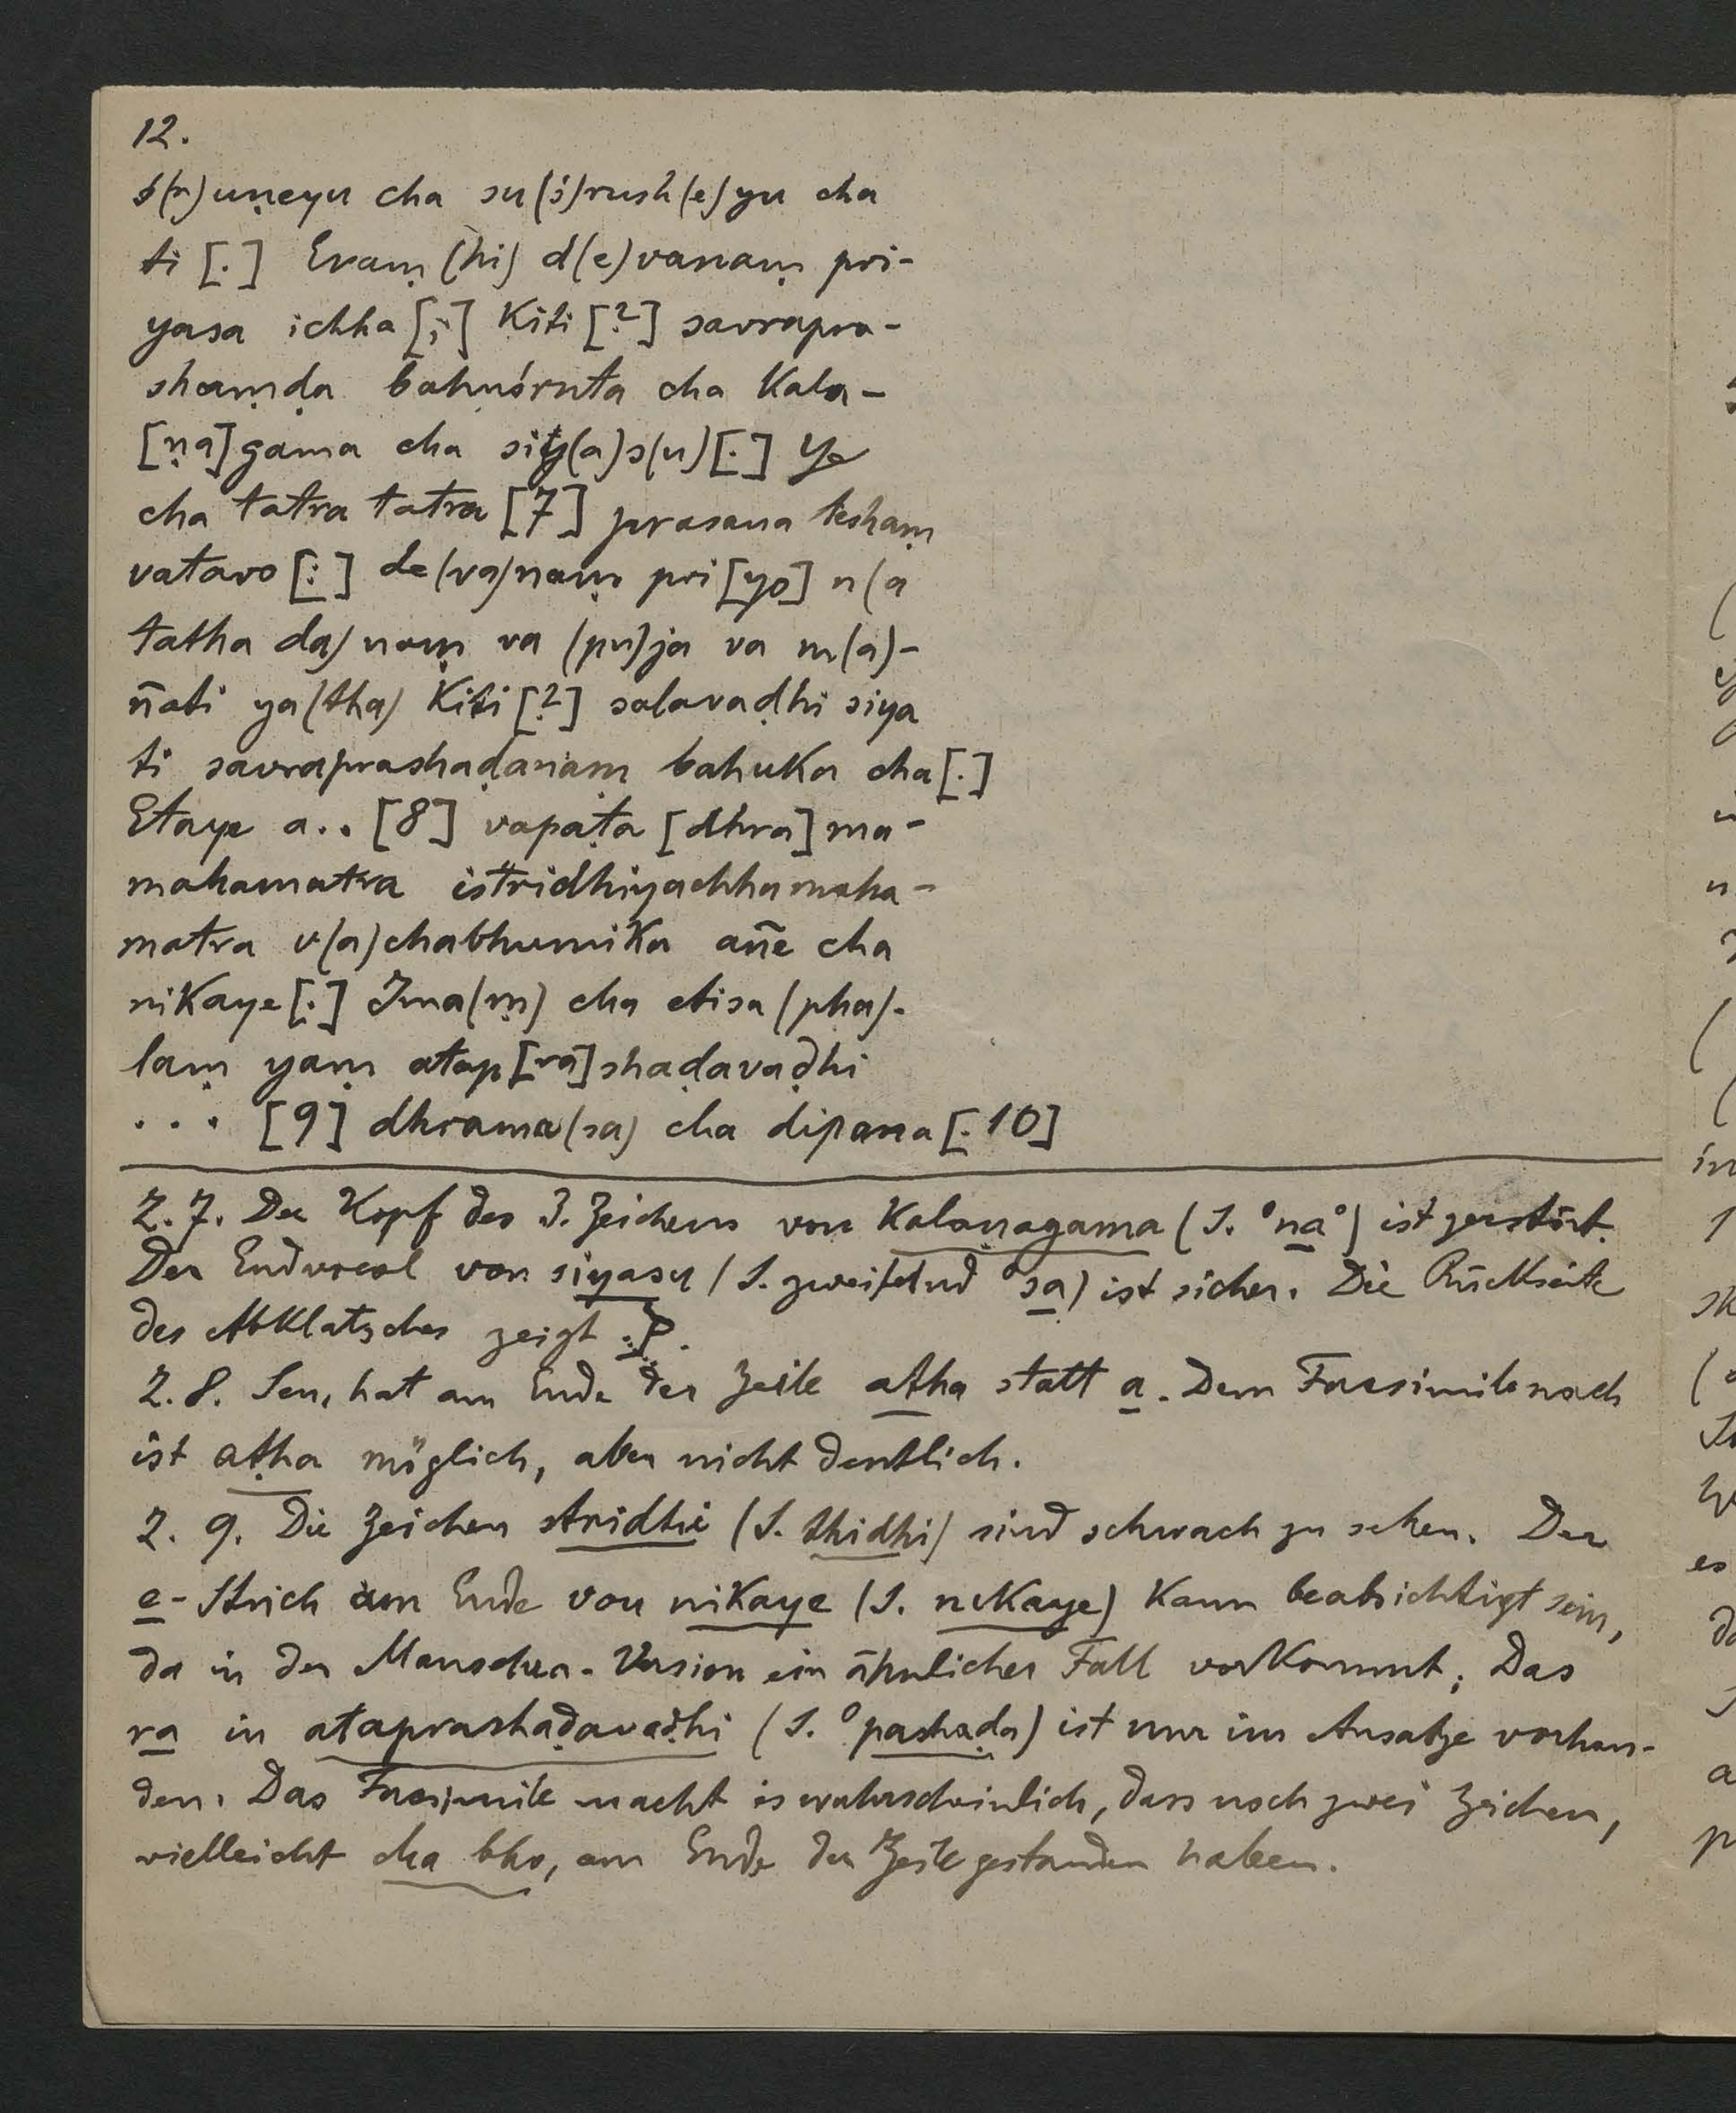 12.
ś(r)uṇeyu cha su(ś)rush(e)yu cha
ti [.] Evaṃ (hi) d(e)vanaṃ pri-
yasa ichha [;] Kiti [?] savrapra-
shaṃḍa bahuśruta cha Kala-
[ṇa]gama cha siy(a)s(u) [.] Ye
cha tatra tatra [7] prasana teshaṃ
vatavo [:] de(va)naṃ pri[yo] n(a
tatha da)naṃ va (pu)ja va m(a)-
ñati ya(tha) Kiti [?] salavaḍhi siya
ti savraprashaḍanaṃ bahuka cha [.]
Etaye a.. [8] vapaṭa [dhra]ma-
mahamatra istridhiyachhamaha-
matra v(a)chabhumika añe cha
nikaye [.] Ima(ṃ) cha etisa (pha)-
laṃ yaṃ atap[ra]shaḍavaḍhi
... [9] dhrama(sa) cha dipana [. 10]
Z. 7. Der Kopf des 3. Zeichens von Kalaṇagama (S. °na°) ist zerstört.
Der Endvocal von siyasu (S. zweifelnd °sa) ist sicher. Die Rückseite
des Abklatsches zeigt
Z. 8. Sen. hat am Ende der Zeile atha statt a. Dem Facsimile nach
ist aṭha möglich, aber nicht deutlich.
Z. 9. Die Zeichen stridhi (S. thidhi) sind schwach zu sehen. Der
e-Strich am Ende von nikaye (S. nikaye) kann beabsichtigt sein,
da in der Mansehra-Version ein ähnlicher Fall vorkommt. Das
ra in ataprashaḍavaḍhi (S. °pashaḍa) ist nur im Ansatze vorhan-
den. Das Facsimile macht es wahrscheinlich, dass noch zwei Zeichen,
vielleicht cha bho, am Ende der Zeile gestanden haben.